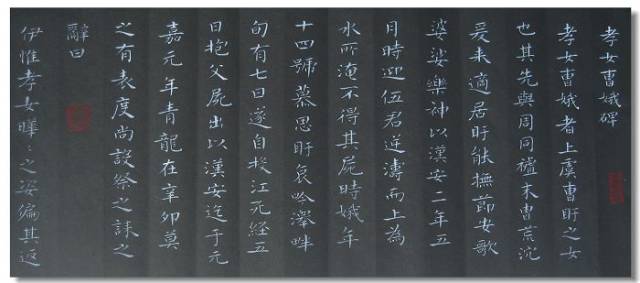 孝女曹娥碑
孝女曹娥者上虞曹盱之女
也其先與周同祖末冑荒沉
爰来適居盱能撫節安歌
婆娑樂神以漢安二年五
月時迎伍君逆濤而上為
水所淹不得其屍時娥年
十四號慕思盱哀吟澤畔
旬有七日遂自投江死經五
日抱父屍出以漢安迄于元
嘉元年青龍在辛卯莫
之有表度尚設祭之誄之
辭曰
伊惟孝女曄〻之姿偏其返